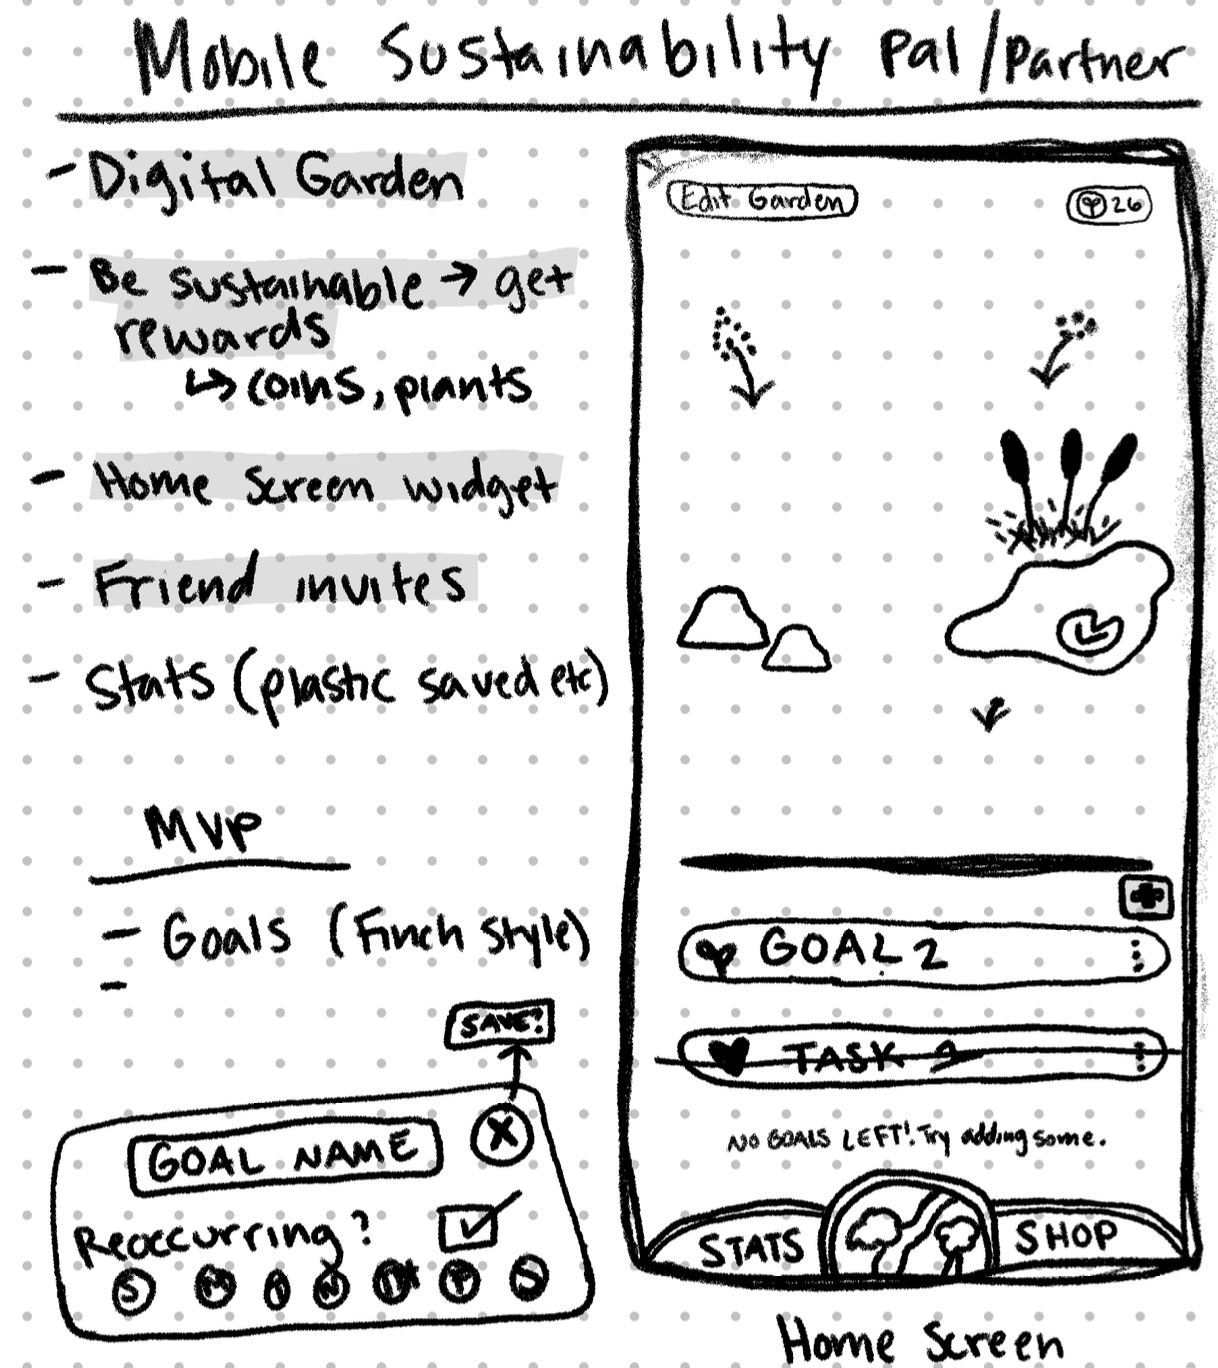 Mobile Sustainability Pal/Partner
- Digital Garden
- Be sustainable → get
rewards
↳ coins, plants
- Home Screen widget
- Friend invites
- Stats (plastic saved etc)
MVP
- Goals (Finch style)
-
SAVE?
X
GOAL NAME
Reoccurring?
S M T W TH F S
Edit Garden
26
GOAL 2
TASK 2
NO GOALS LEFT! Try adding some.
STATS
SHOP
Home Screen